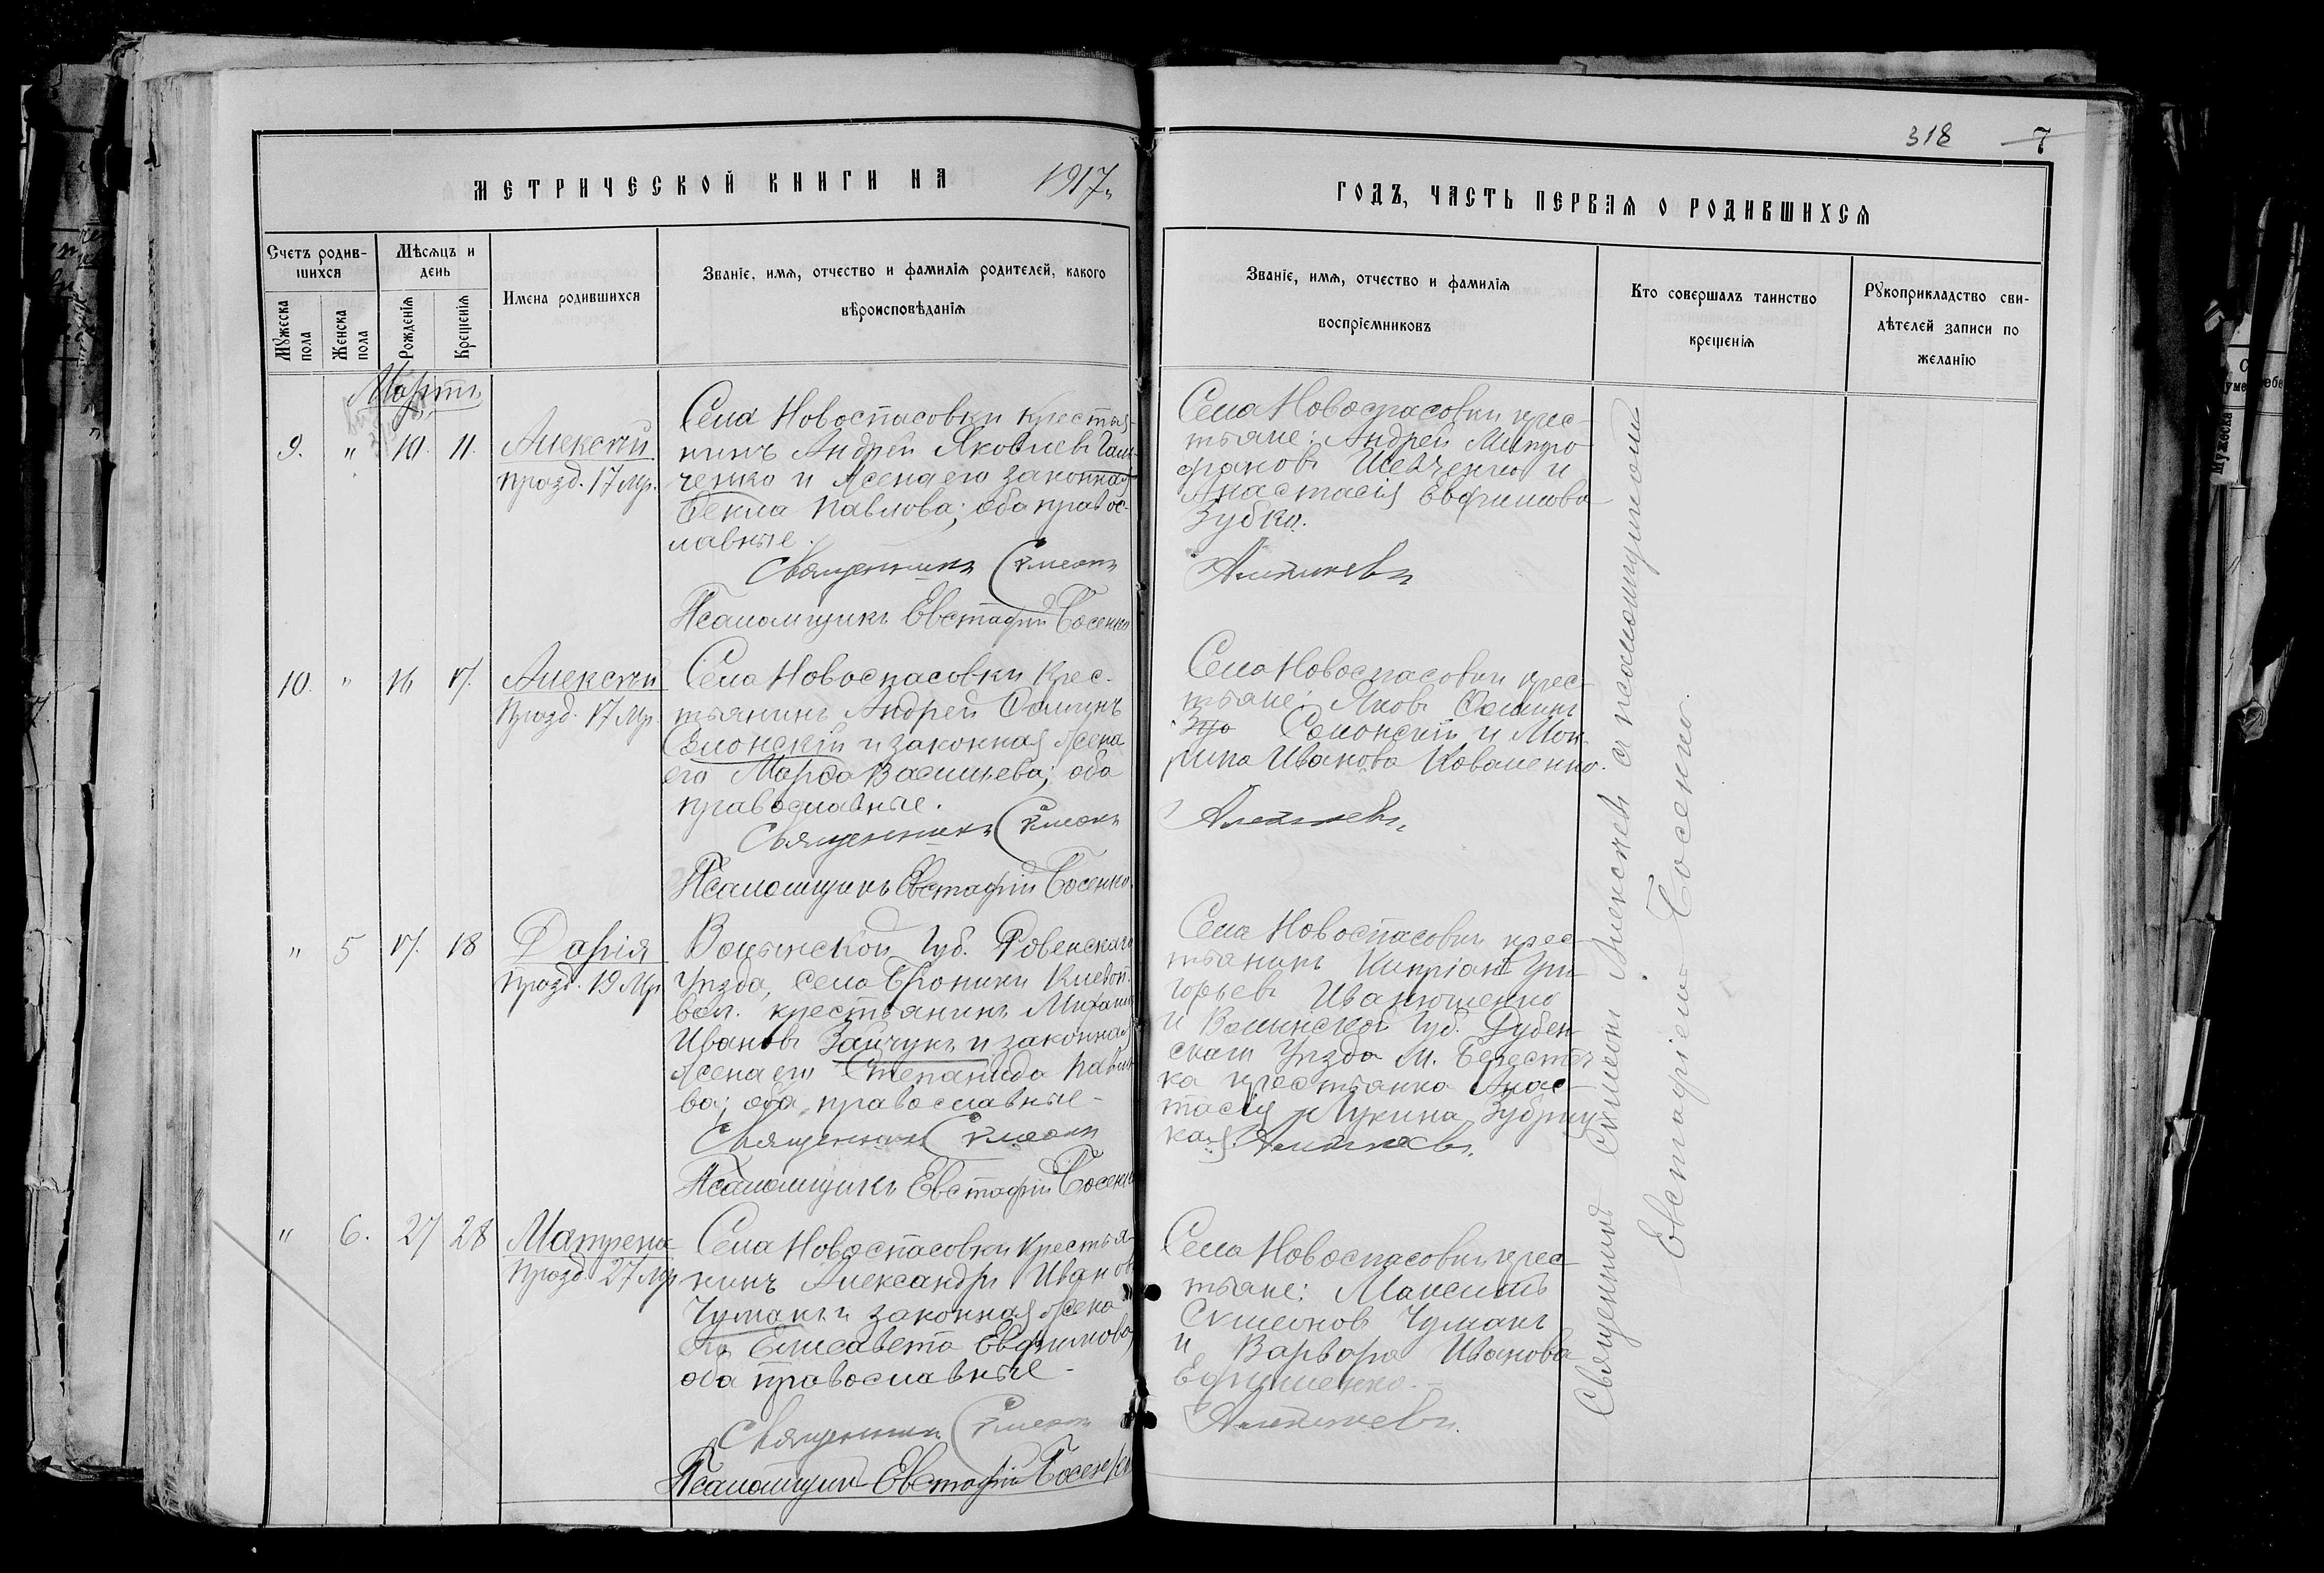 318 7
МЕТРИЧЕСКОЙ КНИГИ НА 1917
ГОДЪ, ЧАСТЬ ПЕРВАЯ О РОДИВШИХСЯ
Счетъ родив-
шихся
Мужеска
пола
Женска
пола
Мѣсяцъ и
день
Рожденія
Крещенія
Имена родившихся
Званіе, имя, отчество и фамилія родителей, какого
вѣроисповѣданія
Званіе, имя, отчество и фамилія
воспріемниковъ
Кто совершалъ таинство
крещенія
Рукоприкладство сви-
дѣтелей записи по
желанію
Мартъ
9. " 10. 11.
Алексѣй
празд. 17 Мр.
Села Новоспасовки крестья-
нинъ Андрей Яковлевъ
ченко и жена его законная
Ѳекла Павлова; оба правос-
лавные.
Священникъ Симеонъ
Псаломщикъ Евстафій Босенко
Села Новоспасовки крес-
тьяне: Андрей Митро-
фановъ Шевченко и
Анастасія Евфимова
Зубко.
Алексѣевъ
10. " 16 17.
Алексѣй
Празд. 17 Мр.
Села Новоспасовки крес-
тьянинъ Андрей Ѳоминъ
Слонскій и законная жена
его Марѳа Васильева; оба
православные.
Священникъ Симеонъ
Псаломщикъ Евстафій Босенко.
Села Новоспасовки крес-
тьяне: Яковъ Ѳоминъ
Слонскій и Мок-
рина Иванова Коваленко.
Алексѣевъ
" 5 17. 18
Дарія
Празд. 19 Мр.
Волынской Губ. Ровенскаго
Уѣзда, села Броники
вол. крестьянинъ Михаилъ
Ивановъ Зайчукъ и законная
жена его Степанида Павло-
ва; оба православные-
Священникъ Симеонъ
Псаломщикъ Евстафій Босенко
Села Новоспасовки крес-
тьянинъ Кипріанъ Гри-
горьевъ Иванюшенко
и Волынской Губ. Дубен-
скаго Уѣзда м. Берестеч-
ка крестьянка Анас-
тасія Лукина Зубриц-
кая. Алексѣевъ.
" 6. 27 28
Матрена
Празд. 27 Мр.
Села Новоспасовки крестья-
нинъ Александръ Ивановъ
Чуманъ и законная жена
его Елисавета Евфимова,
оба православные-
Священникъ Симеонъ
Псаломщикъ Евстафій Босенко
Села Новоспасовки крес-
тьяне: Максимъ
Симеоновъ Чуманъ
и Варвара Иванова
Ефименко.-
Алексѣевъ.
Священникъ Симеонъ Алексѣевъ съ псаломщикомъ
Евстафіемъ Босенко.